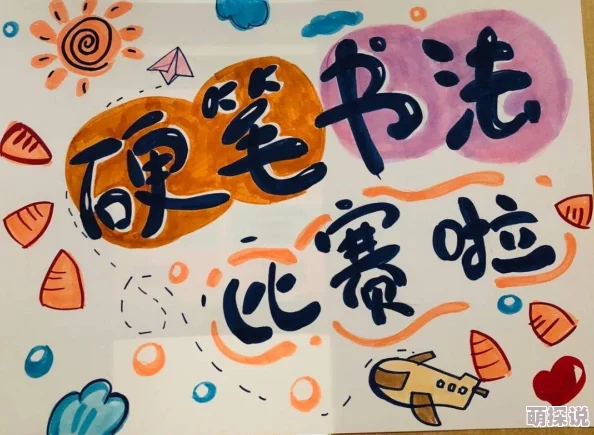 硬笔书法
比赛啦
萌探说